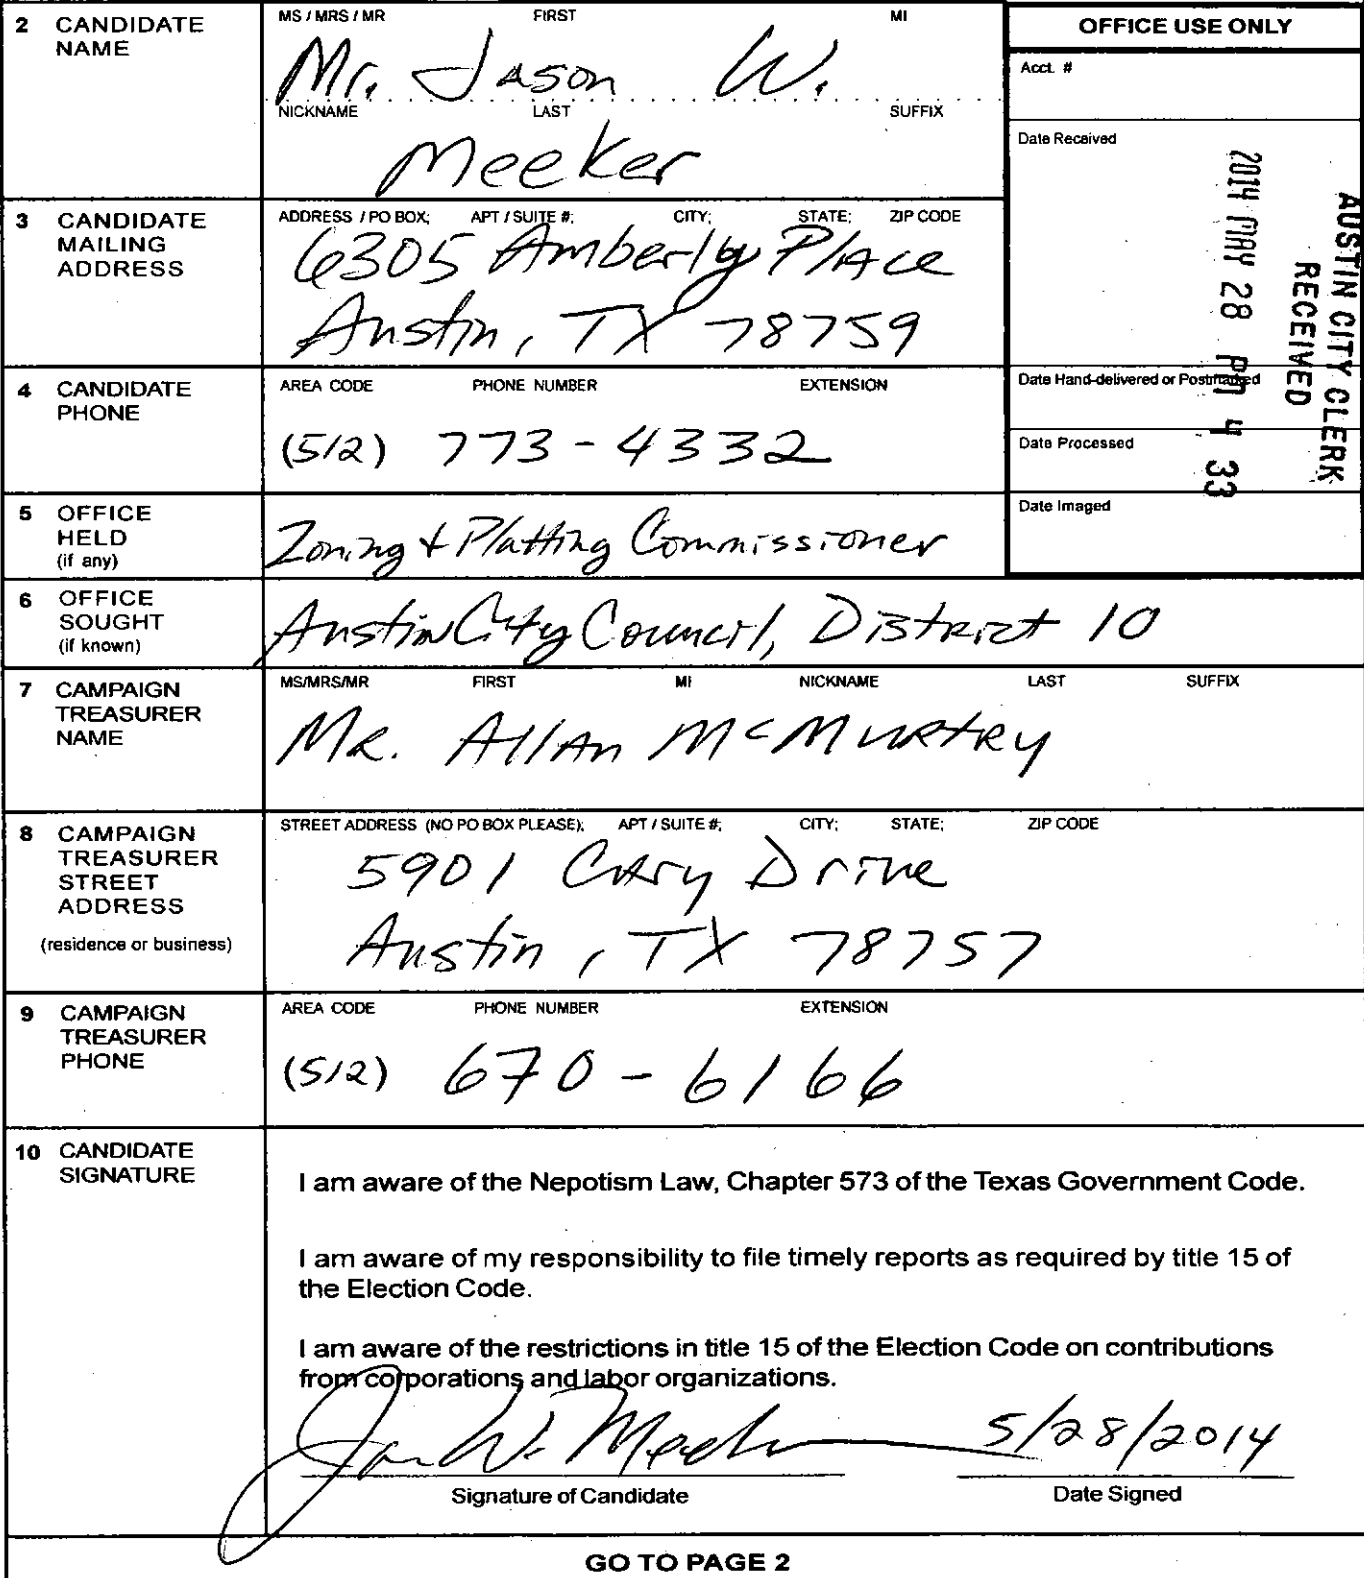 2 CANDIDATE NAME
MS / MRS / MR FIRST MI
Mr. Jason W.
NICKNAME LAST SUFFIX
Meeker
OFFICE USE ONLY
Acct. #
Date Received
AUSTIN CITY CLERK
RECEIVED
2014 MAY 28 PM 4 33
Date Hand-delivered or Postmarked
Date Processed
Date Imaged
3 CANDIDATE MAILING ADDRESS
ADDRESS / PO BOX; APT / SUITE #; CITY; STATE; ZIP CODE
6305 Amberly Place
Austin, TX 78759
4 CANDIDATE PHONE
AREA CODE PHONE NUMBER EXTENSION
(512) 773-4332
5 OFFICE HELD (if any)
Zoning + Platting Commissioner
6 OFFICE SOUGHT (if known)
Austin City Council, District 10
7 CAMPAIGN TREASURER NAME
MS/MRS/MR FIRST MI NICKNAME LAST SUFFIX
Mr. Allan McMurtry
8 CAMPAIGN TREASURER STREET ADDRESS (residence or business)
STREET ADDRESS (NO PO BOX PLEASE); APT / SUITE #; CITY; STATE; ZIP CODE
5901 Cary Drive
Austin, TX 78757
9 CAMPAIGN TREASURER PHONE
AREA CODE PHONE NUMBER EXTENSION
(512) 670-6166
10 CANDIDATE SIGNATURE
I am aware of the Nepotism Law, Chapter 573 of the Texas Government Code.
I am aware of my responsibility to file timely reports as required by title 15 of
the Election Code.
I am aware of the restrictions in title 15 of the Election Code on contributions
from corporations and labor organizations.
Jason W. Meeker 5/28/2014
Signature of Candidate Date Signed
GO TO PAGE 2